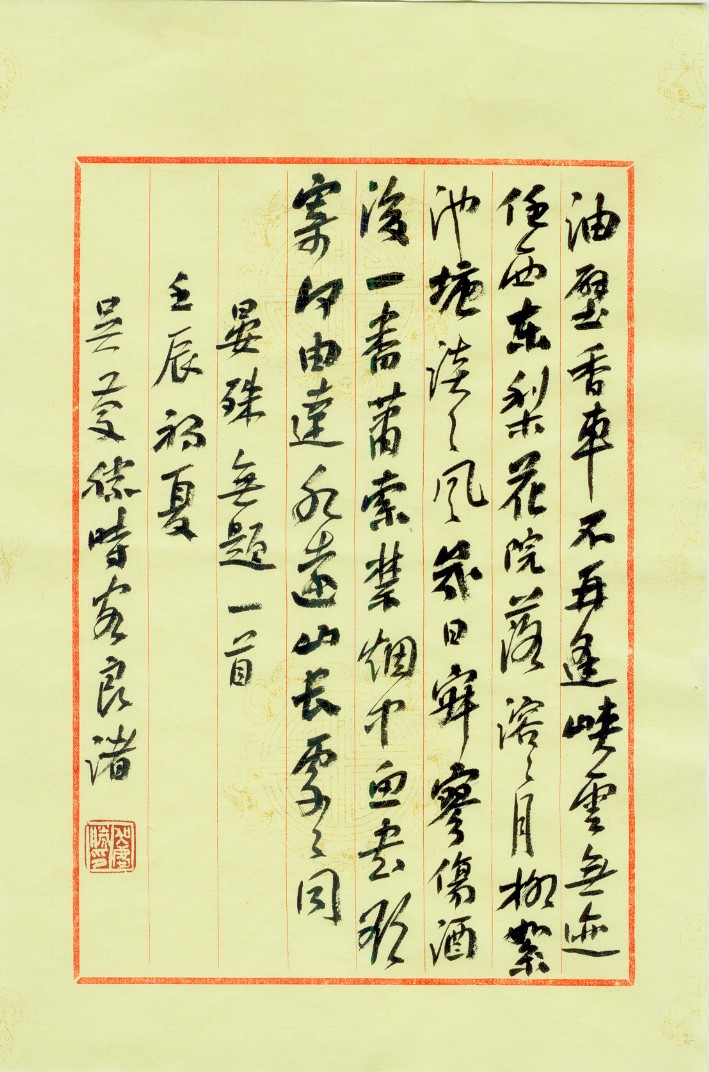 油壁香車不再逢峽雲無迹
任西東梨花院落溶〻月柳絮
池塘淡〻風幾日寂寥傷酒
後一番蕭索禁烟中魚書欲
寄何由達水遠山長處〻同
晏殊無題一首
壬辰初夏
吴慶勝時客良渚